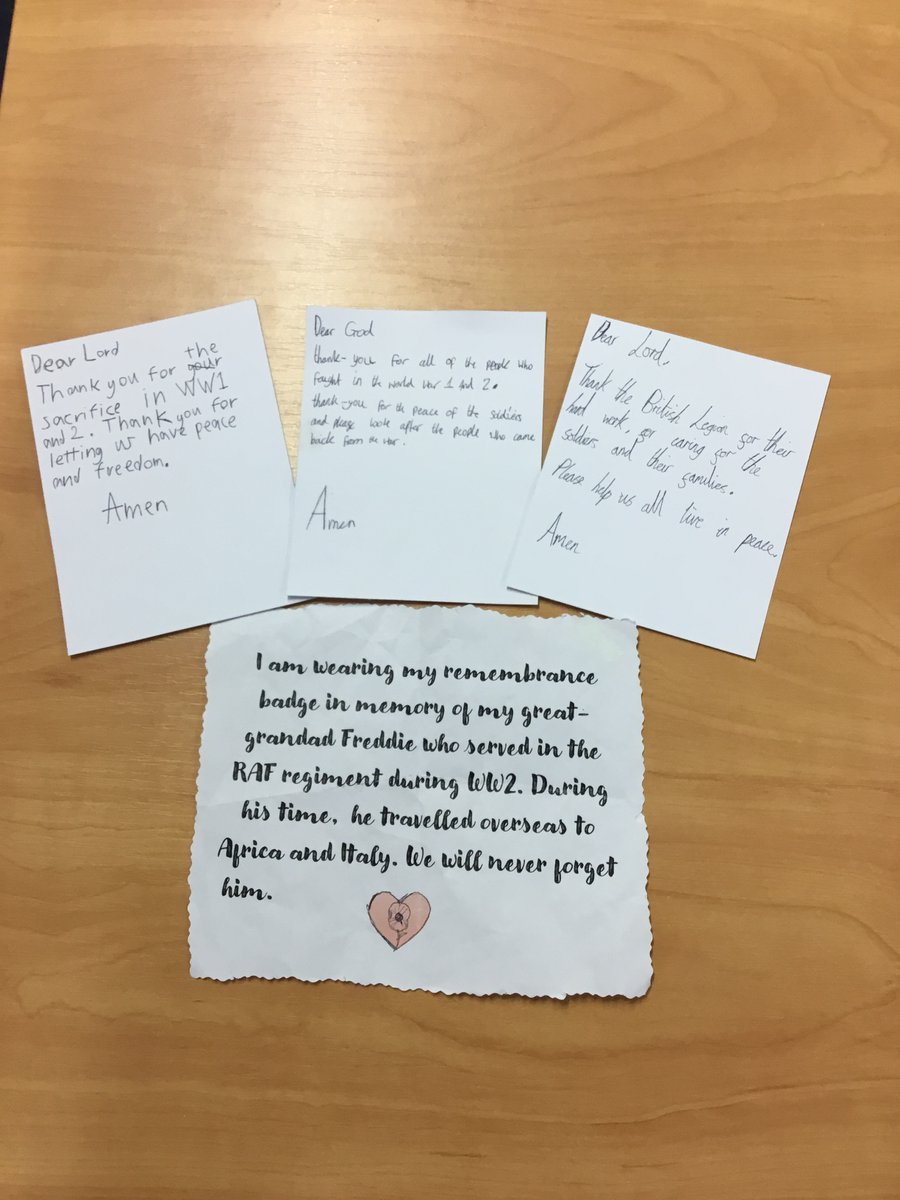 Dear Lord
Thank you for the
sacrifice in WW1
and 2. Thank you for
letting us have peace
and freedom.
Amen
Dear God
thank-you for all of the people who
fought in the world war 1 and 2.
thank-you for the peace of the soldiers
and please look after the people who came
back from the war.
Amen
Dear Lord,
Thank the British Legion for their
hard work, for caring for the
soldiers and their families.
Please help us all live in peace.
Amen
I am wearing my remembrance
badge in memory of my great-
grandad Freddie who served in the
RAF regiment during WW2. During
his time, he travelled overseas to
Africa and Italy. We will never forget
him.